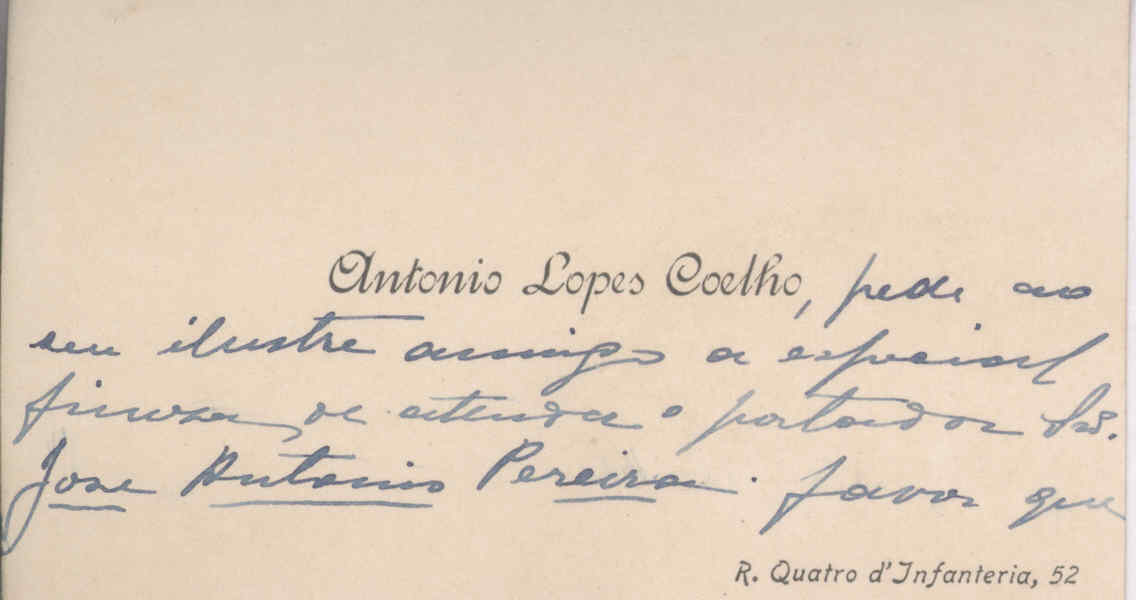 Antonio Lopes Coelho, pede ao
seu ilustre amigo a especial
fineza de atender o portador Snr.
Jose Antonio Pereira. favor que
R. Quatro d'Infanteria, 52